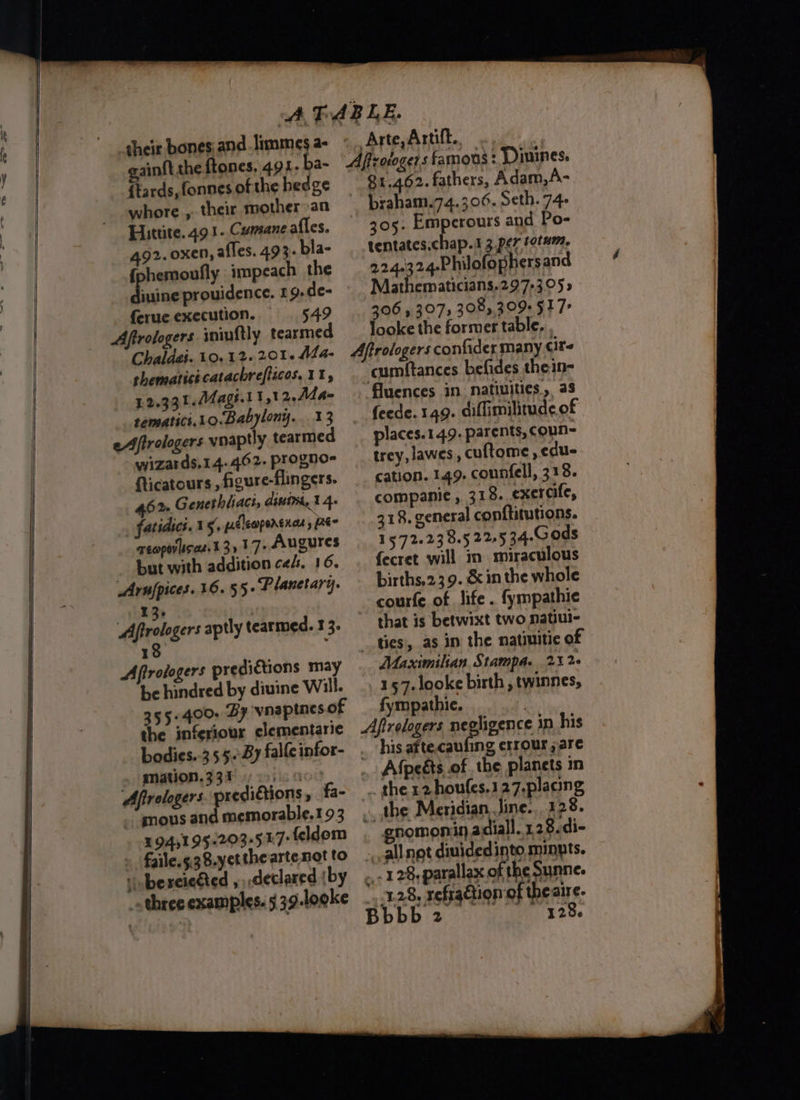 A TABLE.
their bones and limmes a-
gainſt the ſtones. 491. ba-
ſtards, ſonnes of the hedge
whore , their mother an
Hittite. 491. Cumane aſſes.
492. oxen, aſſes. 493. bla-
ſphemouſly impeach the
diuine prouidence. 19. de-
ſerue execution. 549
Aſtrologers iniuſtly tearmed
Chaldei. 10. 12. 201. Ma-
thematici catachreſticos. 11,
12.331. Magi. 11, 12. Ma-
tematici. 10. Babylonij. 13
Aſtrologers vnaptly tearmed
wizards. 14. 462. progno-
ſticatours , figure-flingers.
462. Genethliaci, diuini, 14.
fatidici. 15.
13, 17. Augures
but with addition cœli. 16.
Aruſpices. 16. 55. Planetarij.
13.
Aſtrologers aptly tearmed. 13.
18
Aſtrologers predictions may
be hindred by diuine Will.
355. 400. By vnaptnes of
the inferiour elementarie
bodies. 355. By falſe infor-
mation. 331
Aſtrologers predictions , fa-
mous and memorable. 193
194, 195. 203. 517. ſeldom
faile. 538. yet the arte not to
be reiected , declared by
three examples. 539. looke
Arte, Artiſt.
Aſtrologers famous : Diuines.
81. 462. fathers, Adam, A-
braham. 74. 306. Seth. 74.
305. Emperours and Po-
tentates. chap. 13. per totum.
224. 324. Philoſophers and
Mathematicians. 297. 305,
306 , 307, 308, 309. 517.
looke the former table.
Aſtrologers conſider many cir-
cumſtances beſides the in-
fluences in natiuities , as
ſeede. 149. diſſimilitude of
places. 149. parents, coun-
trey, lawes , cuſtome , edu-
cation. 149. counſell, 318.
companie , 318. exerciſe,
318. general conſtitutions.
157 2. 238. 522, 534. Gods
ſecret will in miraculous
births. 239. & in the whole
courſe of life. ſympathie
that is betwixt two natiui-
ties, as in the natiuitie of
Maximilian Stampa. 212.
157. looke birth , twinnes,
ſympathie.
Aſtrologers negligence in his
his afte cauſing errour , are
Aſpects of the planets in
the 12 houſes. 127. placing
the Meridian line. 128.
gnomon in a diall. 128. di-
all not diuided into minuts.
128. parallax of the Sunne.
128. refraction of the aire.
Bbbb 2 128.